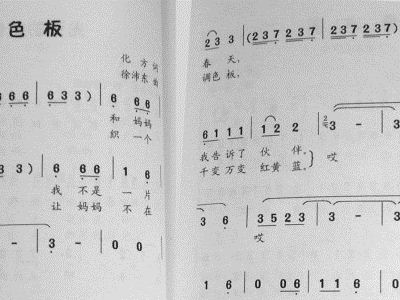 色 板
化 方 词
徐沛东 曲
6 6 6 | 6 3 3 ) | 6 6 6
和 妈妈
织 一个
3 ) | 6 6 6 | 1 6
我 不是 一 片
让 妈妈 不 在
- | 3 - | 0 0
2 3 3 | ( 2 3 7 2 3 7 | 2 3 7 2 3 7 ) |
春 天,
调色 板,
6 1 1 1 | 1 2 2 | 3 - | 3
我告 诉了 伙 伴。 哎
千变 万变 红黄 蓝。
3 6 | 3 5 2 3 | 3 - | 3
哎
1 6 | 0 0 6 | 1 1 6 | 0